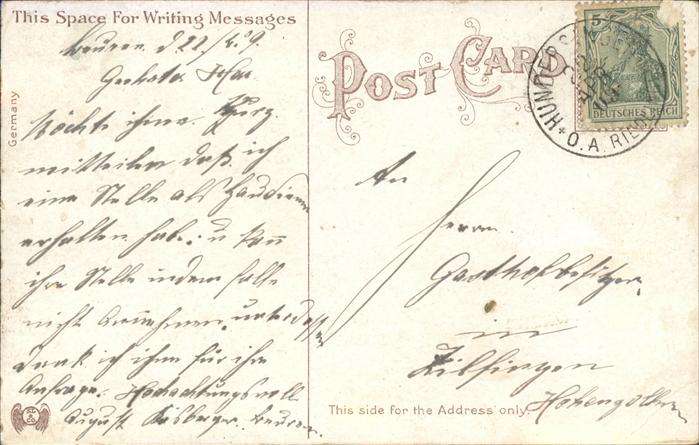 This Space For Writing Messages
Beuren d 22/6.09.
Geehrter Herr
Möchte ihnen kurz
mitteilen daß ich
eine Stelle als Hausdiener
erhalten hab. u kan
ihre Stelle in dem falle
nicht annehmen, unterdessen
dank ich ihnen für ihre
Anfrage. Hochachtungsvoll
August Beuren.
Germany
POST CARD
5
DEUTSCHES REICH
O.A. RIED
An
Herrn
Gasthofbesitzer
in
Hohenzollern
This side for the Address only.